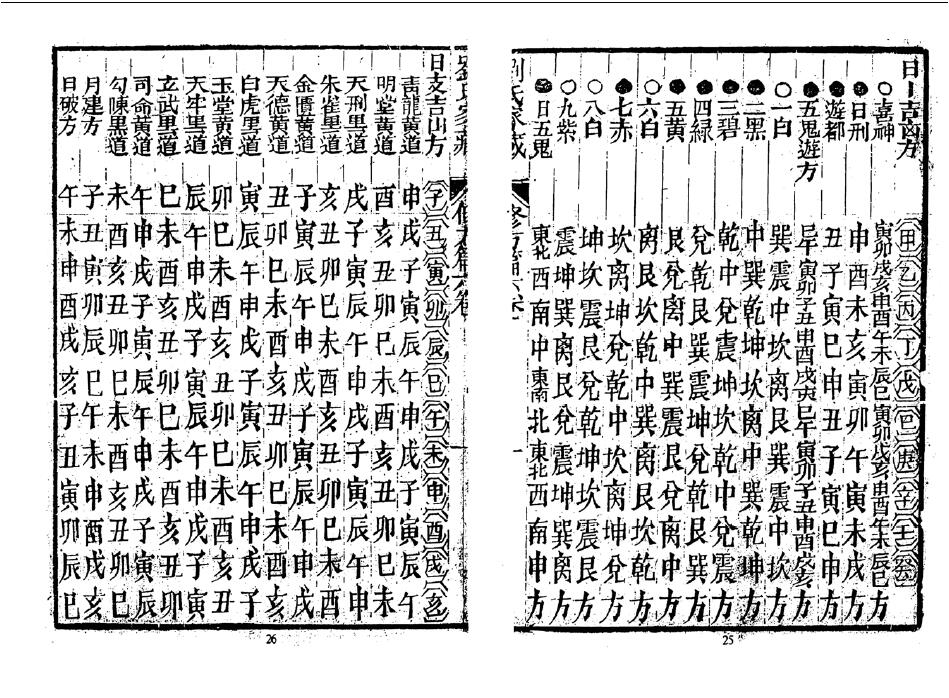 日干吉凶方 甲乙丙丁戊己庚辛壬癸
○喜神 寅卯戌亥申酉午未辰巳寅卯戌亥申酉午未辰巳方
●日刑 申酉未亥寅卯午寅未戌方
●遊都 丑子寅巳申丑子寅巳申方
●五鬼遊方 巳午寅卯子丑申酉戌亥巳午寅卯子丑申酉戌亥方
○一白 巽震中坎离艮巽震中坎方
●二黑 中巽乾坤坎离中巽乾坤方
●三碧 乾中兌震坤坎乾中兌震方
●四緑 兌乾艮巽震坤兌乾艮巽方
●五黃 艮兌离中巽震艮兌离中方
○六白 离艮坎乾中巽离艮坎乾方
●七赤 坎离坤兌乾中坎离坤兌方
○八白 坤坎震艮兌乾坤坎震艮方
○九紫 震坤巽离艮兌震坤巽离方
●日五鬼 東北西南中東南北東北西南申方
劉氏家藏 修方篇六卷 一
25
劉氏家藏 修方篇六卷 一
日支吉凶方 子丑寅卯辰巳午未申酉戌亥
青龍黃道 申戌子寅辰午申戌子寅辰午
明堂黃道 酉亥丑卯巳未酉亥丑卯巳未
天刑黑道 戌子寅辰午申戌子寅辰午申
朱雀黑道 亥丑卯巳未酉亥丑卯巳未酉
金匱黃道 子寅辰午申戌子寅辰午申戌
天德黃道 丑卯巳未酉亥丑卯巳未酉亥
白虎黑道 寅辰午申戌子寅辰午申戌子
玉堂黃道 卯巳未酉亥丑卯巳未酉亥丑
天牢黑道 辰午申戌子寅辰午申戌子寅
玄武黑道 巳未酉亥丑卯巳未酉亥丑卯
司命黃道 午申戌子寅辰午申戌子寅辰
勾陳黑道 未酉亥丑卯巳未酉亥丑卯巳
月建方 子丑寅卯辰巳午未申酉戌亥
日破方 午未申酉戌亥子丑寅卯辰巳
26